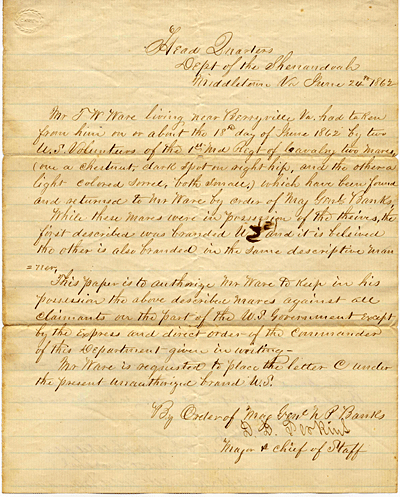 Head Quarters
Dept of the Shenandoah
Middletown Va June 24th 1862
Mr T. W. Ware living near Berryville Va. had taken
from him on or about the 18th day of June 1862 by two
U.S. Volunteers of the 1st Md Regt of Cavalry two mares
(one a chestnut, dark spot on right hip, and the other a
light colored sorrel, both sorrels) which have been found
and returned to Mr Ware by order of Maj Genl Banks,
While these mares were in possession of the theives, the
first described was branded U.S. and it is beleived
the other is also branded in the same descriptive man
=ner,
This paper is to authorize Mr Ware to keep in his
possession the above described mares against all
claimants on the part of the U.S Government except
by the express and direct order of the Commander
of this Department given in writing.
Mr Ware is requested to place the letter C under
the present unauthorized brand U.S.
By Order of Maj Genl N. P. Banks
D. D. Perkins
Major & Chief of Staff